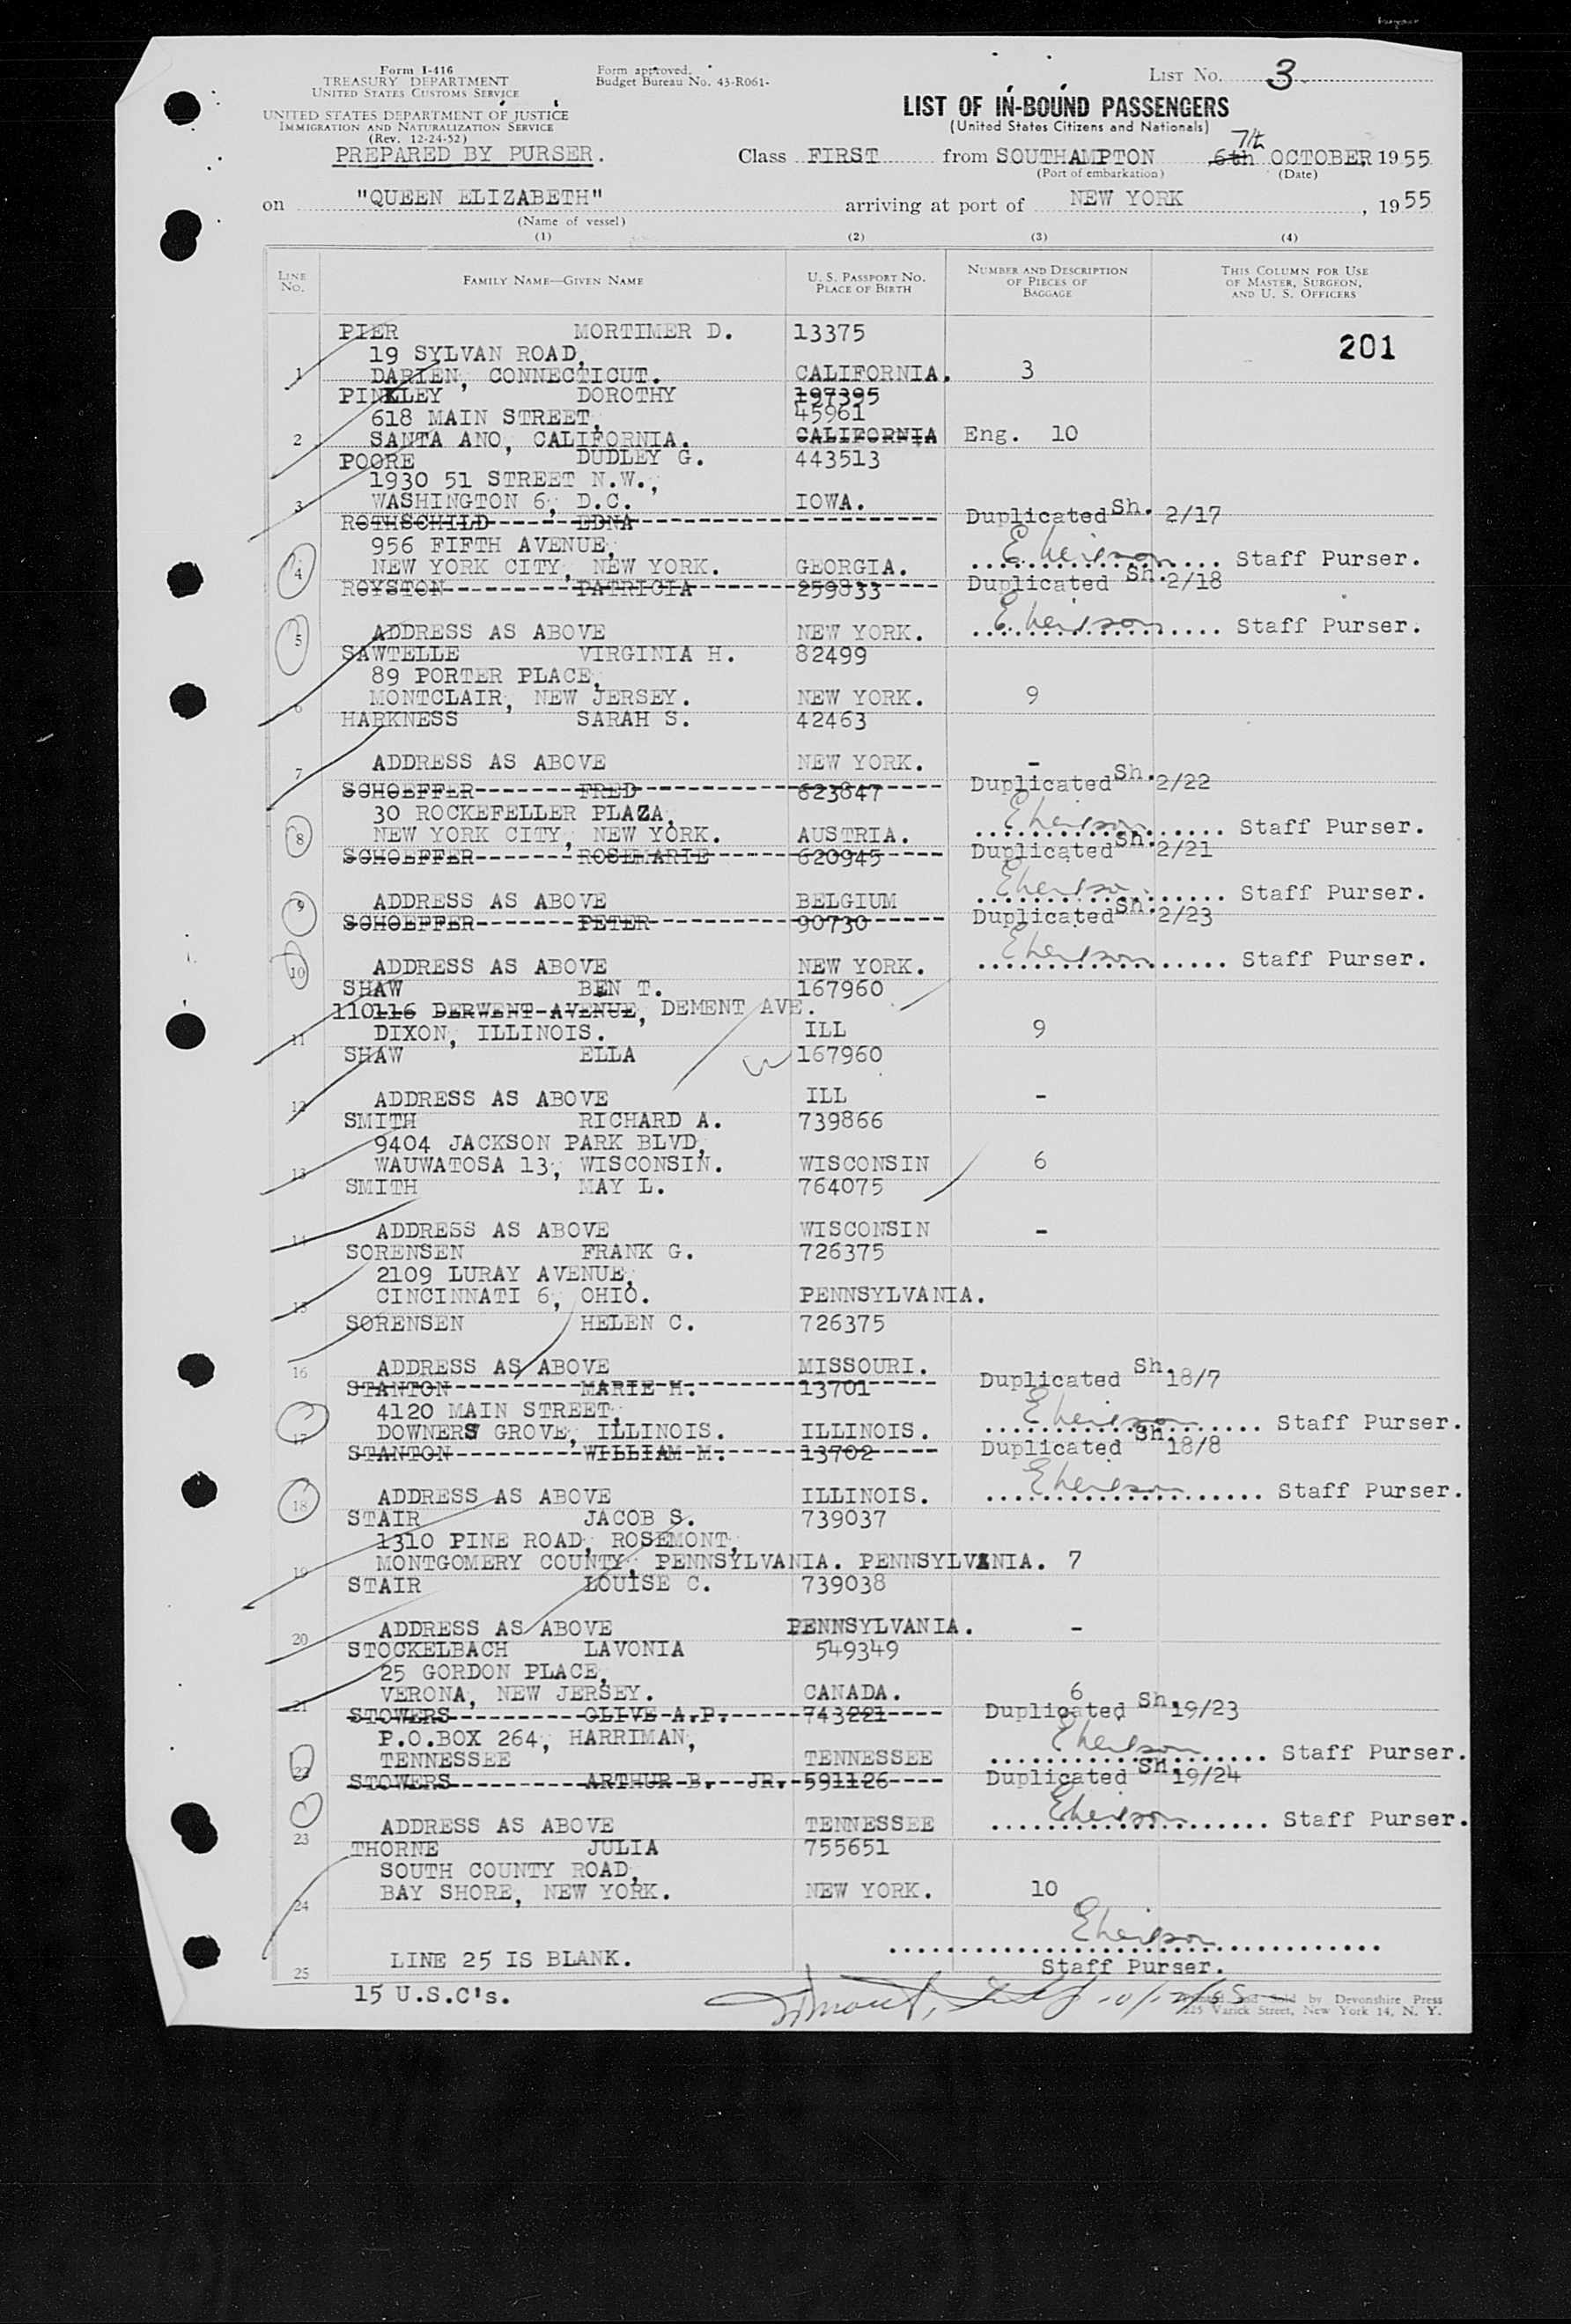 Form I-416
TREASURY DEPARTMENT
UNITED STATES CUSTOMS SERVICE
UNITED STATES DEPARTMENT OF JUSTICE
IMMIGRATION AND NATURALIZATION SERVICE
(Rev. 12-24-52)
PREPARED BY PURSER.
Form approved.
Budget Bureau No. 43-R061-
LIST NO. 3
LIST OF IN-BOUND PASSENGERS
(United States Citizens and Nationals)
7th
Class FIRST from SOUTHAMPTON 6th OCTOBER, 1955
(Port of embarkation) (Date)
on "QUEEN ELIZABETH" arriving at port of NEW YORK, 1955
(Name of vessel)
(1) (2) (3) (4)
LINE NO. FAMILY NAME—GIVEN NAME U. S. PASSPORT NO. PLACE OF BIRTH NUMBER AND DESCRIPTION OF PIECES OF BAGGAGE THIS COLUMN FOR USE OF MASTER, SURGEON, AND U. S. OFFICERS
PIER MORTIMER D. 13375 201
19 SYLVAN ROAD,
1 DARIEN, CONNECTICUT. CALIFORNIA. 3
PINKLEY DOROTHY 197395
618 MAIN STREET, 45961
2 SANTA ANO, CALIFORNIA. CALIFORNIA Eng. 10
POORE DUDLEY G. 443513
1930 51 STREET N.W.,
3 WASHINGTON 6, D.C. IOWA.
ROTHSCHILD EDNA Duplicated Sh. 2/17
956 FIFTH AVENUE,
4 NEW YORK CITY, NEW YORK. GEORGIA. Staff Purser.
ROYSTON PATRICIA 259833 Duplicated Sh. 2/18
5 ADDRESS AS ABOVE NEW YORK. Staff Purser.
SAWTELLE VIRGINIA H. 82499
89 PORTER PLACE,
6 MONTCLAIR, NEW JERSEY. NEW YORK. 9
HARKNESS SARAH S. 42463
7 ADDRESS AS ABOVE NEW YORK. -
SCHOEFFER FRED 623847 Duplicated Sh. 2/22
30 ROCKEFELLER PLAZA,
8 NEW YORK CITY, NEW YORK. AUSTRIA. Staff Purser.
SCHOEFFER ROSEMARIE 620945 Duplicated Sh. 2/21
9 ADDRESS AS ABOVE BELGIUM Staff Purser.
SCHOEFFER PETER 90730 Duplicated Sh. 2/23
10 ADDRESS AS ABOVE NEW YORK. Staff Purser.
SHAW BEN T. 167960
110116 DERWENT AVENUE, DEMENT AVE.
11 DIXON, ILLINOIS. ILL 9
SHAW ELLA 167960
12 ADDRESS AS ABOVE ILL -
SMITH RICHARD A. 739866
9404 JACKSON PARK BLVD,
13 WAUWATOSA 13, WISCONSIN. WISCONSIN 6
SMITH MAY L. 764075
14 ADDRESS AS ABOVE WISCONSIN -
SORENSEN FRANK G. 726375
2109 LURAY AVENUE,
15 CINCINNATI 6, OHIO. PENNSYLVANIA.
SORENSEN HELEN C. 726375
16 ADDRESS AS ABOVE MISSOURI.
STANTON MARIE H. 13701 Duplicated Sh. 18/7
4120 MAIN STREET,
17 DOWNERS GROVE, ILLINOIS. ILLINOIS. Staff Purser.
STANTON WILLIAM M. 13702 Duplicated Sh. 18/8
18 ADDRESS AS ABOVE ILLINOIS. Staff Purser.
STAIR JACOB S. 739037
1310 PINE ROAD, ROSEMONT,
19 MONTGOMERY COUNTY, PENNSYLVANIA. PENNSYLVANIA. 7
STAIR LOUISE C. 739038
20 ADDRESS AS ABOVE PENNSYLVANIA. -
STOCKELBACH LAVONIA 549349
25 GORDON PLACE,
21 VERONA, NEW JERSEY. CANADA. 6
STOWERS OLIVE A.P. 743221 Duplicated Sh. 19/23
P.O.BOX 264, HARRIMAN,
22 TENNESSEE TENNESSEE Staff Purser.
STOWERS ARTHUR B. JR. 591126 Duplicated Sh. 19/24
23 ADDRESS AS ABOVE TENNESSEE Staff Purser.
THORNE JULIA 755651
SOUTH COUNTY ROAD,
24 BAY SHORE, NEW YORK. NEW YORK. 10
25 LINE 25 IS BLANK. Staff Purser.
15 U.S.C's.
Printed and Sold by Devonshire Press
225 Varick Street, New York 14, N. Y.